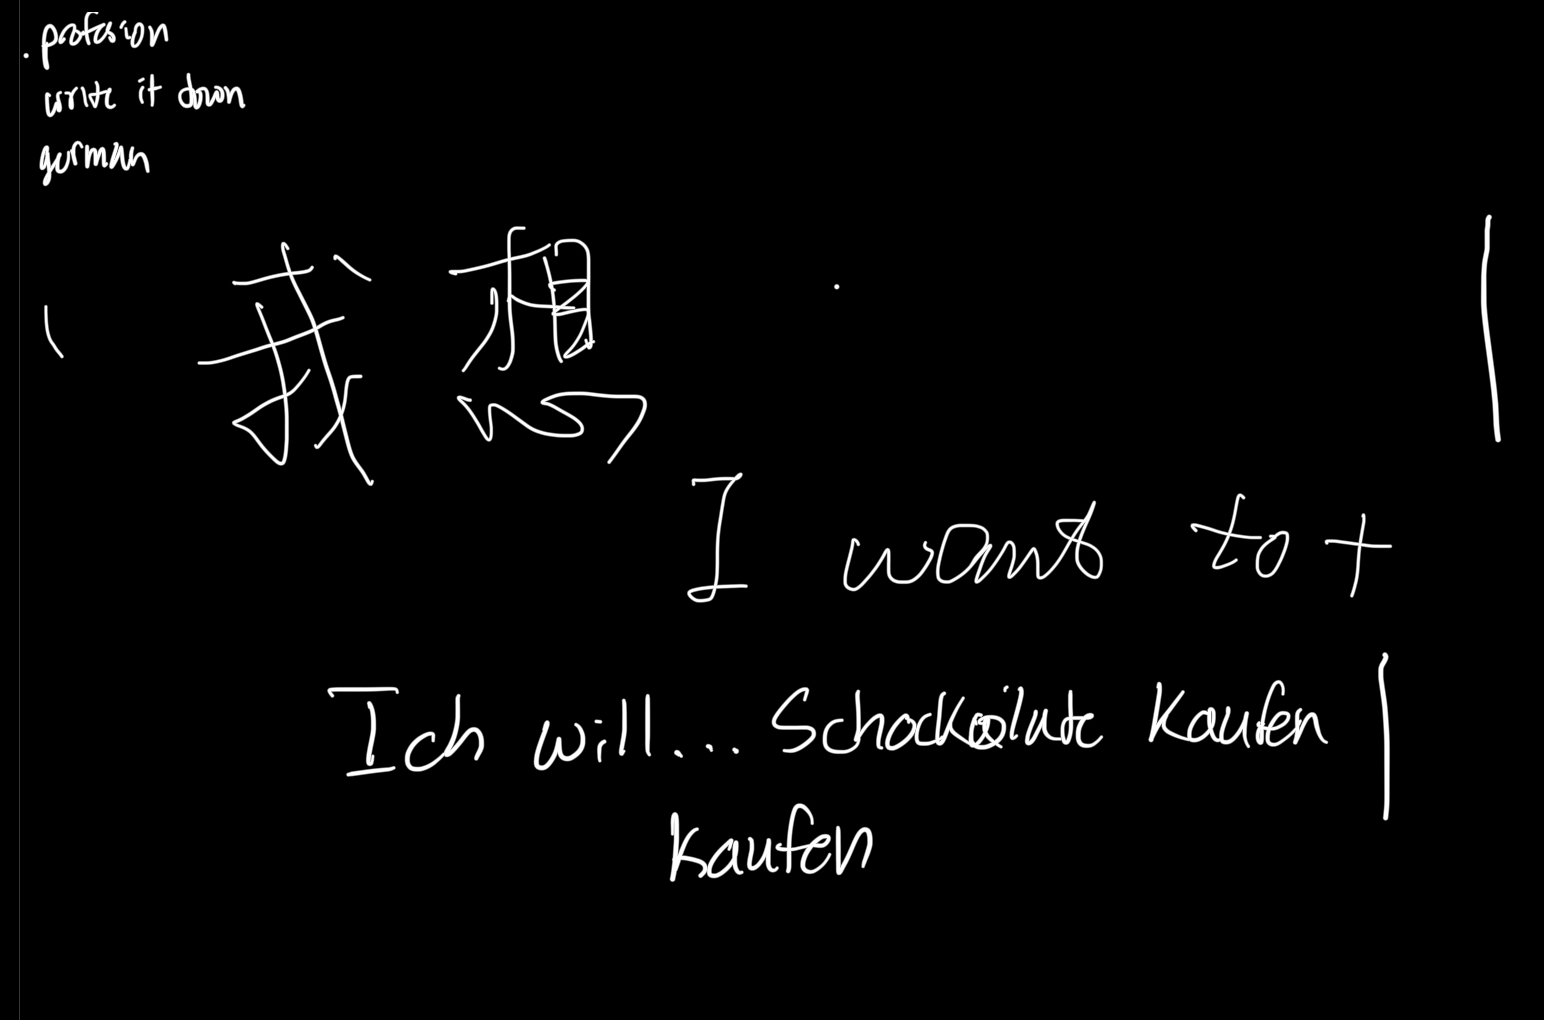 . profesion
write it down
german
我想
I want to +
Ich will... Schockolate kaufen
kaufen